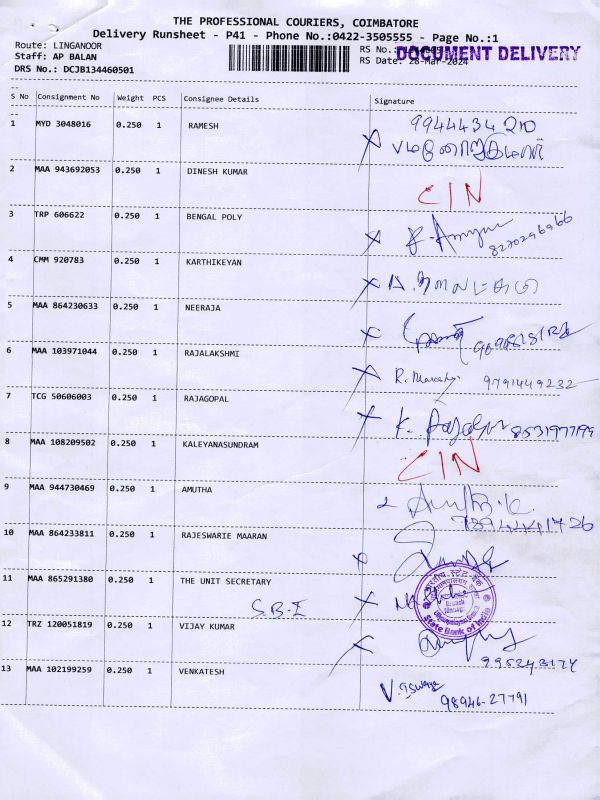 THE PROFESSIONAL COURIERS, COIMBATORE
Delivery Runsheet - P41 - Phone No.:0422-3505555 - Page No.:1
Route: LINGANOOR
RS No.:
DOCUMENT DELIVERY
Staff: AP BALAN
RS Date: 28-Mar-2024
DRS No.: DCJB134460501
S No Consignment No Weight PCS Consignee Details Signature
1 MYD 3048016 0.250 1 RAMESH 9944434210
2 MAA 943692053 0.250 1 DINESH KUMAR CIN
3 TRP 606622 0.250 1 BENGAL POLY 8270296966
4 CMM 920783 0.250 1 KARTHIKEYAN
5 MAA 864230633 0.250 1 NEERAJA
6 MAA 103971044 0.250 1 RAJALAKSHMI 9791449232
7 TCG 50606003 0.250 1 RAJAGOPAL 8531977199
8 MAA 108209502 0.250 1 KALEYANASUNDRAM CIN
9 MAA 944730469 0.250 1 AMUTHA
10 MAA 864233811 0.250 1 RAJESWARIE MAARAN
11 MAA 865291380 0.250 1 THE UNIT SECRETARY
S.B.I
State Bank of India
12 TRZ 120051819 0.250 1 VIJAY KUMAR
13 MAA 102199259 0.250 1 VENKATESH
98946-27791